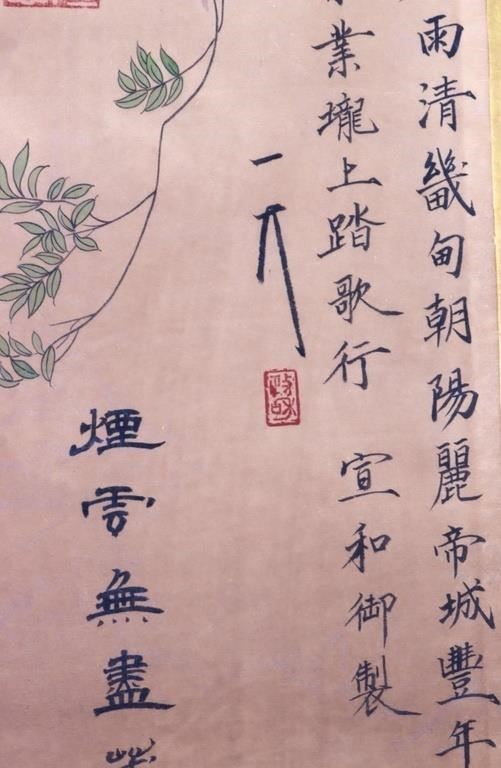 雨清畿甸朝陽麗帝城豐年
業壠上踏歌行 宣和御製
煙雲無盡